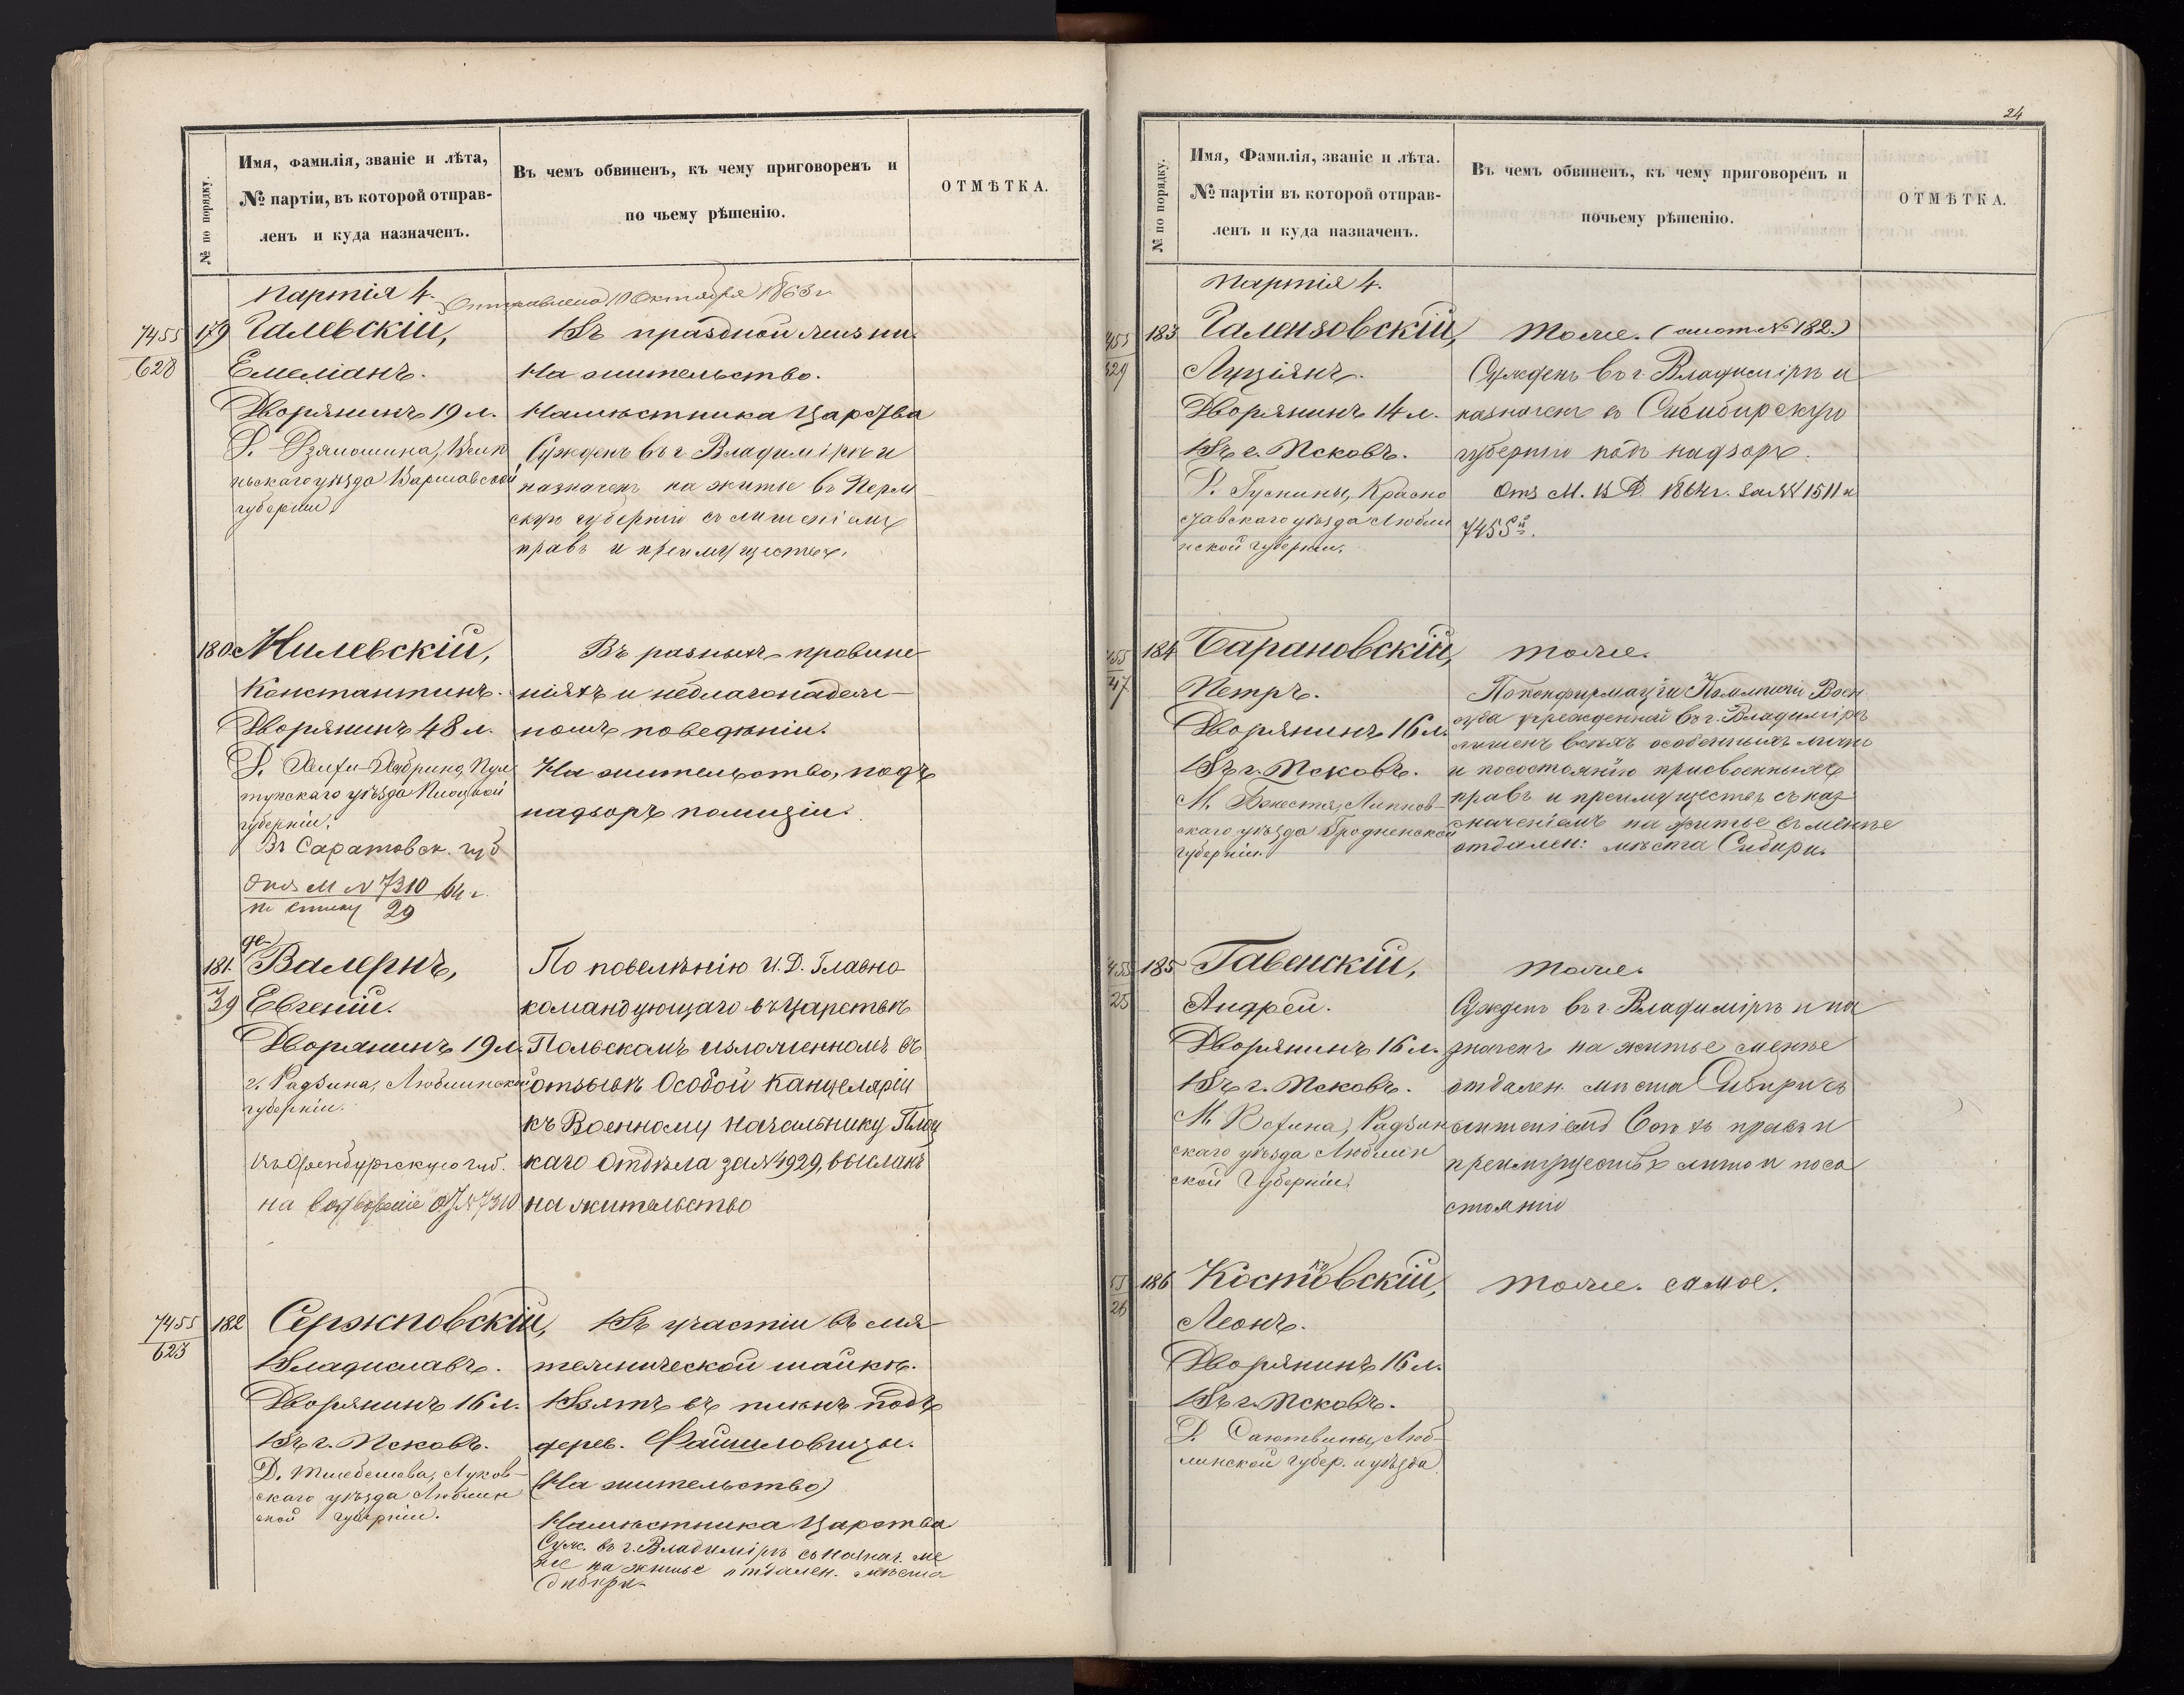 № по порядку.
Имя, фамилія, званіе и лѣта,
№ партіи, въ которой отправ-
ленъ и куда назначенъ.
Въ чемъ обвиненъ, къ чему приговоренъ и
по чьему рѣшенію.
ОТМѢТКА.
Партія 4.
Отправлена 10 Октября 1863 г.
7455
628
179
Галевскій,
Емеліанъ.
Дворянинъ 19 л.
губерніи.
Въ праздной жизни.
На жительство.
Намѣстника Царства
Сужденъ въ г. Владимірѣ и
назначенъ на житье въ Перм
скую губернію съ лишеніемъ
правъ и преимуществъ.
180.
Милевскій,
Константинъ.
Дворянинъ 48 л.
тускаго уѣзда Плоцкой
губерніи.
Въ Саратовск. губ
№ 7310 64 г.
29
Въ разныхъ провине
ніяхъ и неблагонадеж-
номъ поведеніи.
На жительство, подъ
надзоръ полиціи.
181.
39
де
Валернъ,
Евгеній.
Дворянинъ 19 л.
г. Радзина, Люблинской
губерніи.
Въ Оренбургскую губ.
на водвореніе № 7310
По повелѣнію И. Д. Главно
командующаго въ Царствѣ
Польскомъ изложенномъ въ
отзывѣ Особой Канцеляріи
къ Военному Начальнику Плоц
каго Отдѣла за № 4929, высланъ
на жительство
7455
623
182
Сержповскій,
Владиславъ.
Дворянинъ 16 л.
Въ г. Псковъ.
Луков-
скаго уѣзда Люблин
ской губерніи.
Въ участіи въ мя-
тежнической шайкѣ.
Взятъ въ плѣнъ подъ
дерев. Файшловицы.
На жительство
Намѣстника Царства
Суж. въ г. Владимірѣ съ назнач. ме
нѣе на житье отдален. мѣста
Сибири.
24
№ по порядку.
Имя, Фамилія, званіе и лѣта.
№ партіи въ которой отправ-
ленъ и куда назначенъ.
Въ чемъ обвиненъ, къ чему приговоренъ и
почьему рѣшенію.
ОТМѢТКА.
Партія 4.
455
629
183
Галензовскій,
Луціянъ.
Дворянинъ 14 л.
Въ г. Псковъ.
Красно
ставскаго уѣзда Любли
нской губерніи.
Тоже. (смот № 182.)
Сужденъ въ г. Владимірѣ и
назначенъ въ
губернію подъ надзоръ.
1864 г. за №№ 1511 и
7455й.
455
47
184
Барановскій,
Петръ.
Дворянинъ 16 л.
Въ г. Псковъ.
скаго уѣзда Гродненской
губерніи.
тоже.
По конфирмаціи Коммисіи Воен
суда учрежденной въ г. Владимірѣ
лишенъ всѣхъ особенныхъ лично
и посостоянію присвоенныхъ
правъ и преимуществъ съ наз
наченіемъ на житье въ менѣе
отдален: мѣста Сибири.
455
25
185
Гавенскій,
Андрей.
Дворянинъ 16 л.
Въ г. Псковъ.
Радзин
скаго уѣзда Люблин
ской Губерніи.
тоже.
Сужденъ въ г. Владимірѣ и на
значенъ на житье менѣе
отдален. мѣста Сибири съ
лишеніемъ всѣхъ правъ и
преимуществъ лично и посо
стоянію
55
26
186
Костовскій,
ко
Леонъ.
Дворянинъ 16 л.
Въ г. Псковъ.
Люб-
линской губер. и уѣзда.
тоже. самое.